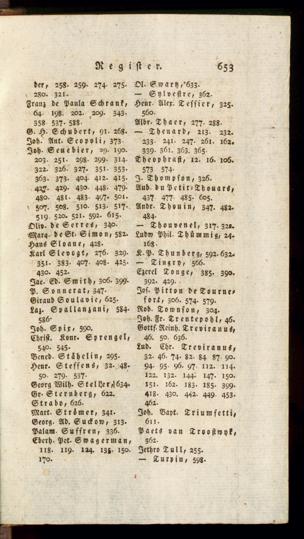 Register. 653
der, 258. 259. 274. 275.
280. 321.
Franz de Paula Schrank,
64. 198. 202. 209. 343.
358. 537. 588.
G. H. Schubert, 91. 268.
Joh. Ant. Scopoli, 373.
Joh. Senebier, 29. 190.
203. 251. 298. 299. 314.
322. 326. 327. 351. 353.
363. 373. 404. 412. 415.
427. 429. 430. 448. 479.
480. 481. 483. 497. 501.
507. 508. 510. 513. 517.
519. 520. 521. 592. 615.
Oliv. de Serres, 340.
Marq. de St. Simon, 582.
Hans Sloane, 428.
Karl Slevogt, 276. 329.
351. 383. 407. 408. 425.
430. 452.
Jac. Ed. Smith, 306. 399.
P. Sonnerat, 347.
Giraud Soulavie, 625.
Laz. Spallanzani, 584.
586.
Joh. Spix, 590.
Christ. Konr. Sprengel,
540. 545.
Bened. Stähelin, 295.
Henr. Steffens, 32. 48.
50. 279. 537.
Georg Wilh. Steller, 634.
Gr. Sternberg, 622.
Strabo, 626.
Mart. Strömer, 341.
Georg. Ad. Suckow, 313.
Palam. Suffren, 336.
Eberh. Pet. Swagerman,
118. 119. 124. 135. 150.
170.
Ol. Swartz, 633.
— Sylvestre, 362.
Henr. Alex. Tessier, 325.
560.
Albr. Thaer, 277. 288.
— Thenard, 213. 232.
233. 241. 247. 261. 162.
339. 361. 363. 365.
Theophrast, 12. 16. 106.
573. 574.
J. Thompson, 326.
Aub. du Petit-Thouars,
437. 477. 485. 605.
Andr. Thouin, 347. 482.
484.
— Thouvenel, 317. 328.
Ludw. Phil. Thümmig, 24.
168.
K. P. Thunberg, 592. 632.
— Tingry, 566.
Ezreel Tonge, 385. 390.
392. 429.
Jos. Pitton de Tourne-
fort, 306. 574. 579.
Rob. Townson, 304.
Joh. Fr. Trentepohl, 46.
Gottfr. Reinh. Treviranus,
46. 50. 636.
Lud. Chr. Treviranus,
32. 46. 74. 82. 84. 87. 90.
94. 95. 96. 97. 112. 114.
122. 132. 144. 147. 150.
151. 162. 183. 185. 399.
418. 430. 442. 449. 453.
462.
Joh. Bapt. Triumfetti,
611.
Paets van Troostwyk,
362.
Jethro Tull, 255.
— Turpin, 598.